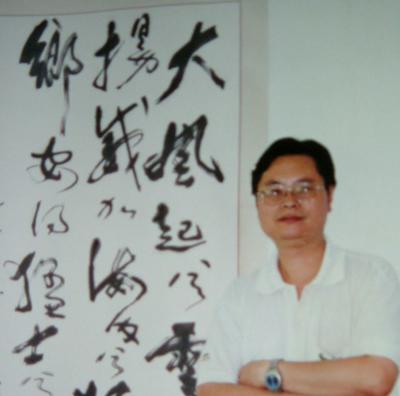 大風起兮雲
揚威加海内兮
鄉安得猛士兮